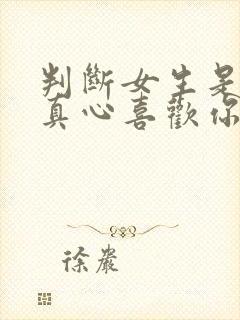 判斷女生是
真心喜歡你
徐巖